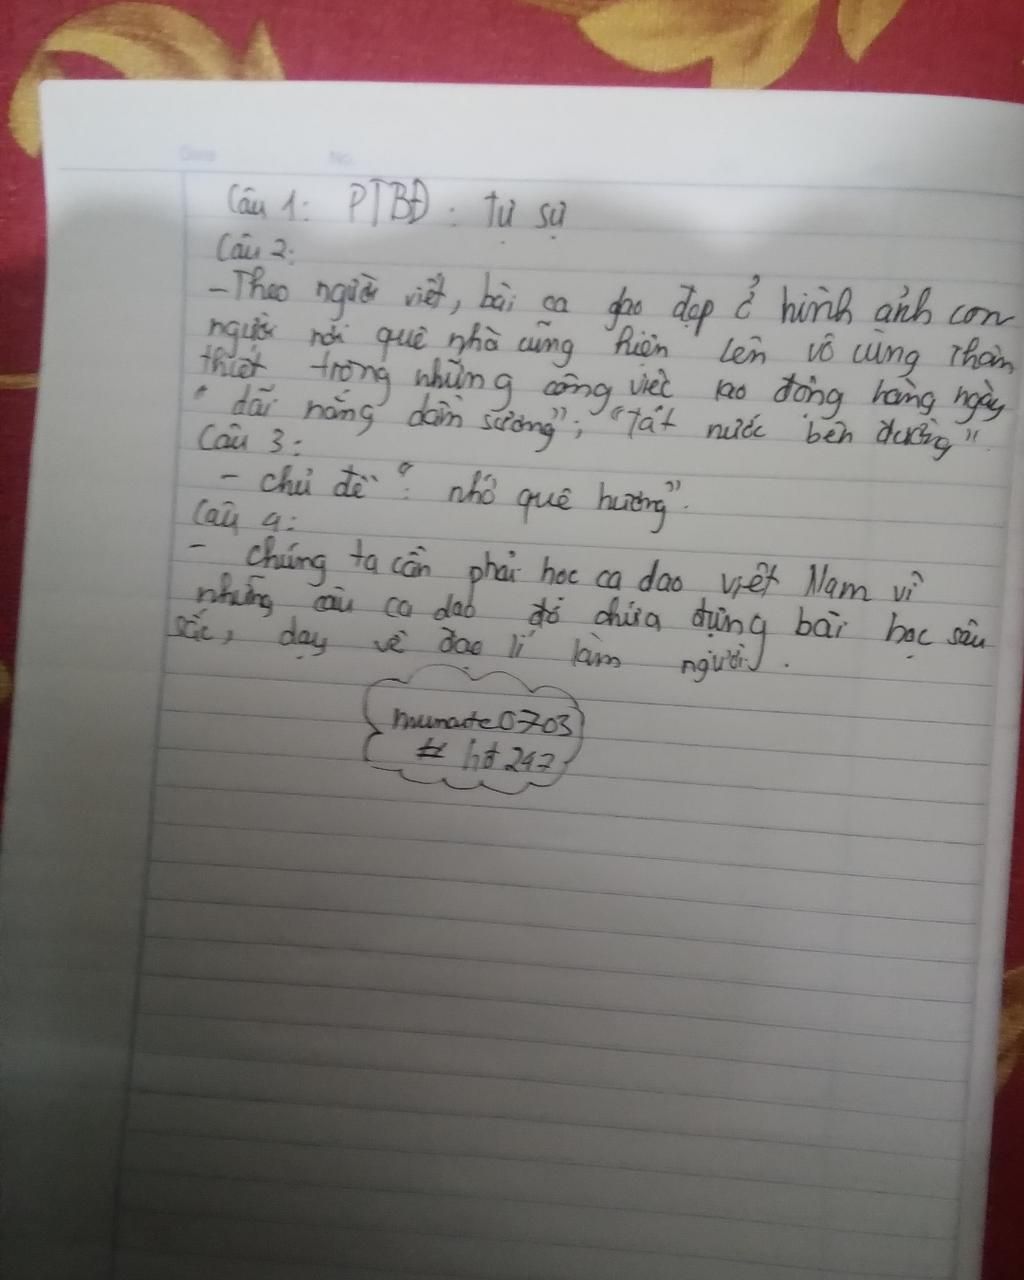 Date No.
Câu 1: PTBĐ: tự sự
Câu 2:
- Theo người viết, bài ca dao đẹp ở hình ảnh con
người nơi quê nhà cũng hiện lên vô cùng thân
thiết trong những công việc lao động hàng ngày
"dãi nắng dầm sương"; "tát nước bên đường"
Câu 3:
- chủ đề ": nhớ quê hương".
Câu 4:
- chúng ta cần phải học ca dao việt Nam vì
những câu ca dao đó chứa đựng bài học sâu
sắc, dạy về đạo lí làm người.
0703
# hđ 247